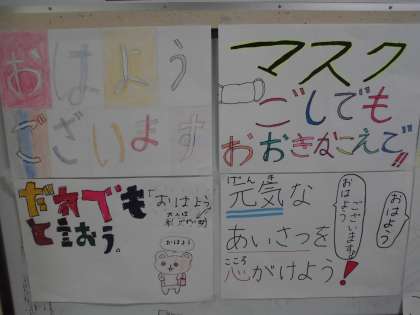 おはよう
ございます
マスク
ごしでも
おおきなこえで!!
だれでも「おはよう」
と言おう。
おはよう
げんき
元気な
あいさつを
こころ
心がけよう!
おはよう
ございます
おはよう